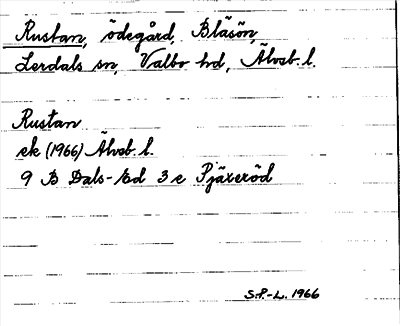 Rustan, ödegård, Blåsön,
Lerdals sn, Valbo hd, Älvsb. l.
Rustan
ek (1966) Älvsb. l.
9 B Dals-Ed 3 e Pjäxeröd
S.P.-L. 1966